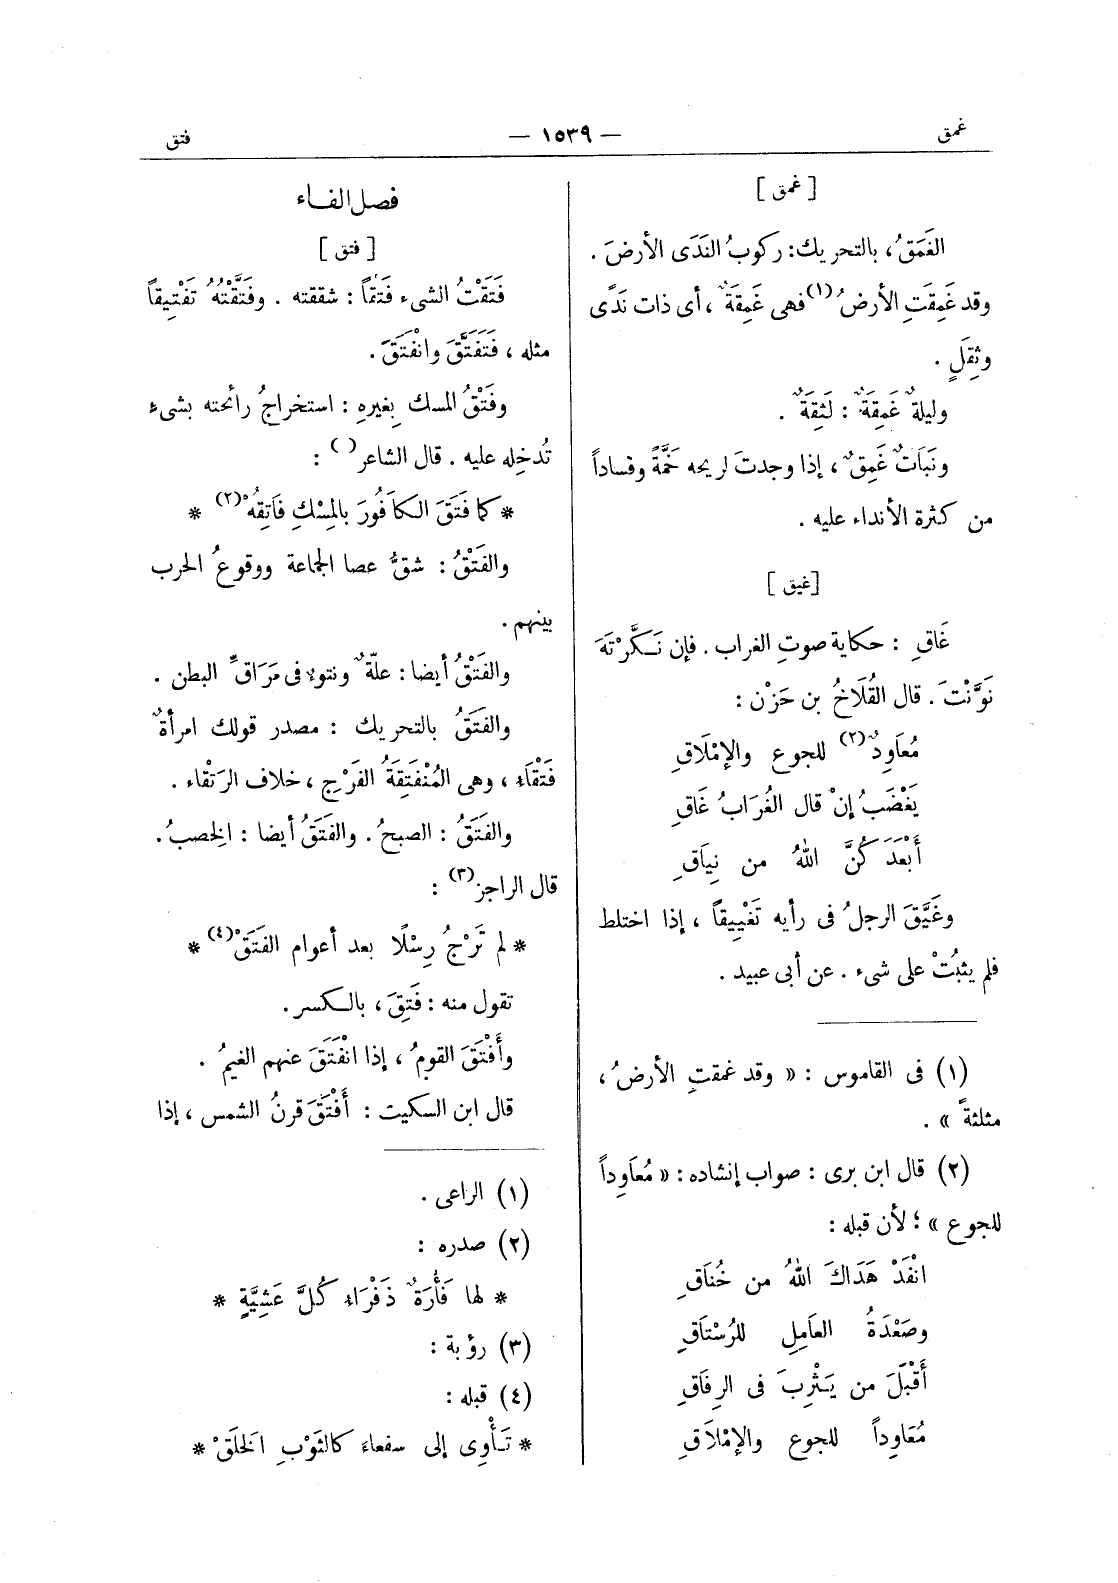 غمق
— ١٥٣٩ —
فتق
[ غمق ]
الغَمَقُ، بالتحريك: ركوبُ النَدَى الأرضَ .
وقد غَمِقَتِ الأرضُ (١) فهى غَمِقَةٌ ، أى ذات نَدًى
وثِقَلٍ .
وليلةٌ غَمِقَةٌ : لَثِقَةٌ .
ونَبَاتٌ غَمِقٌ ، إذا وجدتَ لريحه خَمَّةً وفساداً
من كثرة الأنداء عليه .
[ غيق ]
غَاقِ : حكاية صوتِ الغراب . فإن نَكَّرْتَهَ
نَوَّنْتَ . قال القُلَاخُ بن حَزْن :
مُعَاوِدٌ (٢) للجوع والإمْلَاقِ
يَغْضَبُ إنْ قال الغُرَابُ غَاقِ
أَبْعَدَ كُنَّ اللهُ من نِيَاقِ
وغَيَّقَ الرجلُ فى رأيه تَغْيِيقاً ، إذا اختلط
فلم يثبُتْ على شىء . عن أبى عبيد .
(١) فى القاموس : « وقد غمقتِ الأرضُ ،
مثلثةً » .
(٢) قال ابن برى : صواب إنشاده : « مُعَاوِداً
للجوع » ؛ لأن قبله :
انْفَدْ هَدَاكَ اللهُ من خُنَاقِ
وصَعْدَةُ العَامِلِ للرُسْتَاقِ
أَقْبَلَ من يَثْرِبَ فى الرِفَاقِ
مُعَاوِداً للجوع والإمْلَاقِ
فصل الفاء
[ فتق ]
فَتَقْتُ الشىء فَتْقاً : شققته . وفَتَّقْتُهُ تَفْتِيقاً
مثله ، فَتَفَتَّقَ وانْفَتَقَ .
وفَتْقُ المسك بِغيرِهِ : استخراجُ رائحته بشىء
تُدخِله عليه . قال الشاعر ( ) :
* كما فَتَقَ الكَافُورَ بالمِسْكِ فَاتِقُهْ (٢) *
والفَتْقُ : شقُّ عصا الجماعة ووقوعُ الحرب
بينهم .
والفَتْقُ أيضا : علّةٌ ونتوء فى مَرَاقِّ البطن .
والفَتَقُ بالتحريك : مصدر قولك امرأةٌ
فَتْقَاء ، وهى المُنْفَتِقَةُ الفَرْجِ ، خلاف الرَتْقاء .
والفَتَقُ : الصبحُ . والفَتَقُ أيضا : الخصبُ .
قال الراجز (٣) :
* لم تَرْجُ رِسْلًا بعد أعوام الفَتَقْ (٤) *
تقول منه : فَتِقَ ، بالكسر .
وأَفْتَقَ القومُ ، إذا انْفَتَقَ عنهم الغيمُ .
قال ابن السكيت : أَفْتَقَ قرنُ الشمس ، إذا
(١) الراعى .
(٢) صدره :
* لها فَأْرَةٌ ذَفْرَاء كُلَّ عَشِيَّةٍ *
(٣) رؤبة :
(٤) قبله :
* تَأْوِى إلى سفعاءَ كالثَوْبِ الخَلَقْ *